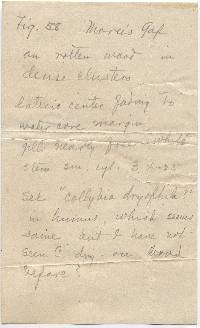 Fig. 58 Morris Gap
on rotten wood in
dense clusters
lateric center fading to
water core margin
gills nearly free white
stem sm. cyl. 3 x .25
See "collybia dryophila?"
in humus, which seems
same but I have not
seen C. dry. on wood
before?